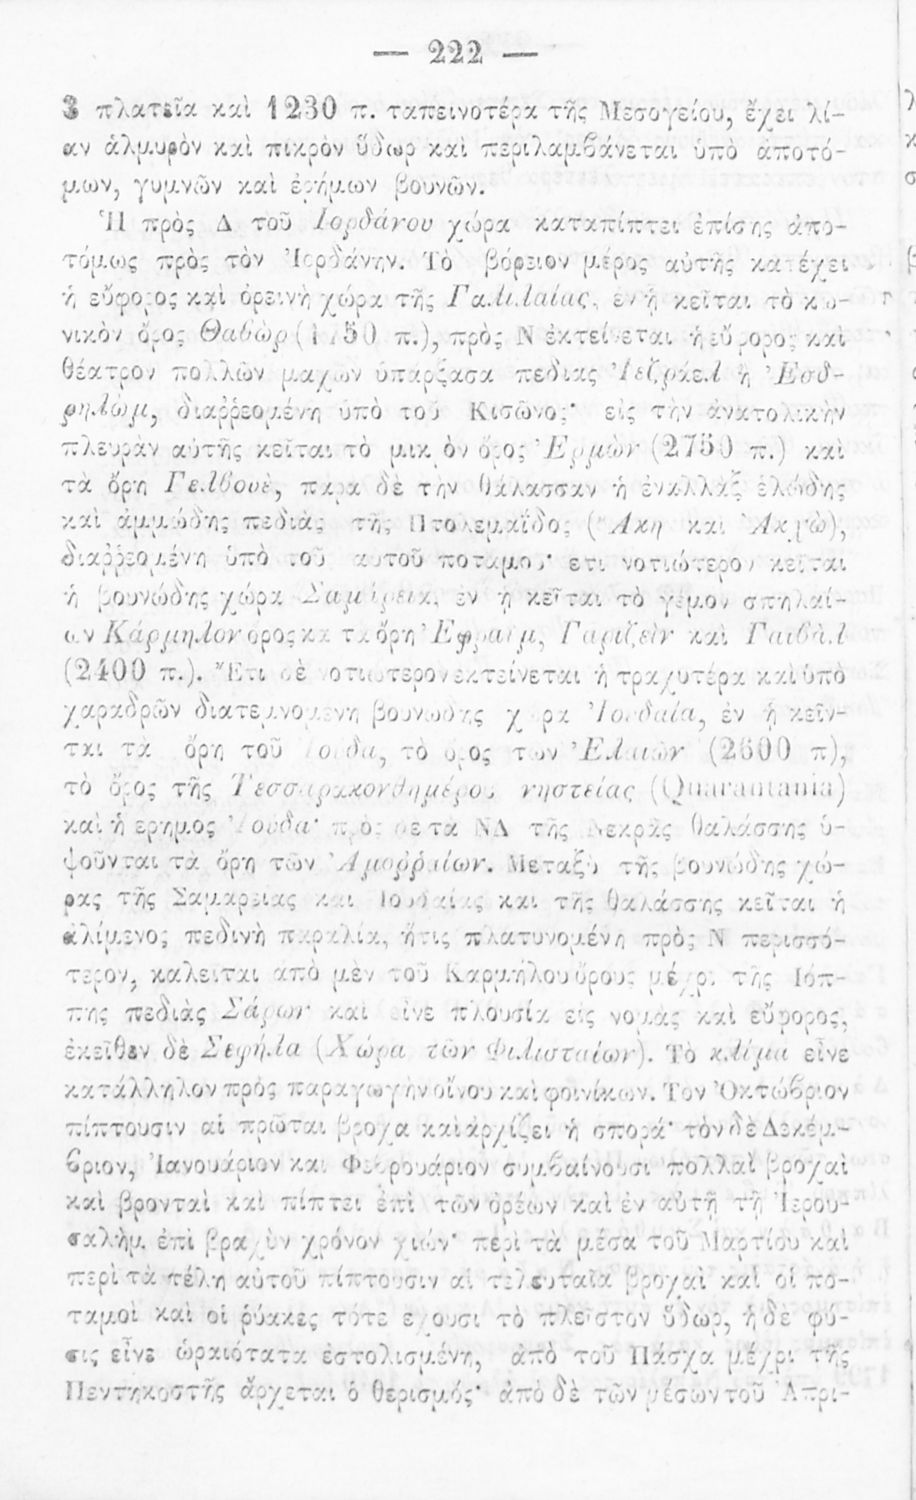 — 222 —
3 πλατεῖα καὶ 1230 π. ταπεινοτέρα τῆς Μεσογείου, ἔχει λί-
αν ἁλμυρὸν καὶ πικρὸν ὕδωρ καὶ περιλαμβάνεται ὑπὸ ἀποτό-
μων, γυμνῶν καὶ ἐρήμων βουνῶν.
Ἡ πρὸς Δ τοῦ Ἰορδάνου χώρα καταπίπτει ἐπίσης ἀπο-
τόμως πρὸς τὸν Ἰορδάνην. Τὸ βόρειον μέρος αὐτῆς κατέχει
ἡ εὔφορος καὶ ὀρεινὴ χώρα τῆς Γαλιλαίας, ἐν ᾗ κεῖται τὸ κω-
νικὸν ὄρος Θαβὼρ (1750 π.), πρὸς Ν ἐκτείνεται ἡ εὔφορος καὶ
θέατρον πολλῶν μαχῶν ὑπάρξασα πεδιὰς Ἰεζράελ ἢ Ἐσδ-
ρηλώμ, διαῤῥεομένη ὑπὸ τοῦ Κισῶνος· εἰς τὴν ἀνατολικὴν
πλευρὰν αὐτῆς κεῖται τὸ μικρὸν ὄρος Ἑρμὼν (2750 π.) καὶ
τὰ ὄρη Γελβουέ, παρὰ δὲ τὴν θάλασσαν ἡ ἐναλλὰξ ἑλώδης
καὶ ἀμμώδης πεδιὰς τῆς Πτολεμαΐδος (Ἄκη καὶ Ἀκχὼ),
διαῤῥεομένη ὑπὸ τοῦ αὐτοῦ ποταμοῦ· ἔτι νοτιώτερον κεῖται
ἡ βουνώδης χώρα Σαμάρεια, ἐν ᾗ κεῖται τὸ γέμον σπηλαί-
ων Κάρμηλον ὄρος καὶ τὰ ὄρη Ἐφραΐμ, Γαριζεὶν καὶ Γαιβὰλ
(2400 π.). Ἔτι δὲ νοτιώτερον ἐκτείνεται ἡ τραχυτέρα καὶ ὑπὸ
χαραδρῶν διατεμνομένη βουνώδης χώρα Ἰουδαία, ἐν ᾗ κεῖν-
ται τὰ ὄρη τοῦ Ἰούδα, τὸ ὄρος τῶν Ἐλαιῶν (2600 π),
τὸ ὄρος τῆς Τεσσαρακονθημέρου νηστείας (Quarantania)
καὶ ἡ ἔρημος Ἰούδα· πρὸς δὲ τὰ ΝΔ τῆς Νεκρᾶς θαλάσσης ὑ-
ψοῦνται τὰ ὄρη τῶν Ἀμοῤῥαίων. Μεταξὺ τῆς βουνώδης χώ-
ρας τῆς Σαμαρείας καὶ Ἰουδαίας καὶ τῆς θαλάσσης κεῖται ἡ
ἀλίμενος πεδινὴ παραλία, ἥτις πλατυνομένη πρὸς Ν περισσό-
τερον, καλεῖται ἀπὸ μὲν τοῦ Καρμήλου ὄρους μέχρι τῆς Ἰόπ-
πης πεδιὰς Σάρων καὶ εἶνε πλουσία εἰς νομὰς καὶ εὔφορος,
ἐκεῖθεν δὲ Σεφήλα (Χώρα τῶν Φιλισταίων). Τὸ κλίμα εἶνε
κατάλληλον πρὸς παραγωγὴν οἴνου καὶ φοινίκων. Τὸν Ὀκτώβριον
πίπτουσιν αἱ πρῶται βροχαὶ καὶ ἀρχίζει ἡ σπορά· τὸν δὲ Δεκέμ-
βριον, Ἰανουάριον καὶ Φεβρουάριον συμβαίνουσι πολλαὶ βροχαὶ
καὶ βρονταὶ καὶ πίπτει ἐπὶ τῶν ὀρέων καὶ ἐν αὐτῇ τῇ Ἱερου-
σαλὴμ ἐπὶ βραχὺν χρόνον χιών· περὶ τὰ μέσα τοῦ Μαρτίου καὶ
περὶ τὰ τέλη αὐτοῦ πίπτουσιν αἱ τελευταῖαι βροχαὶ καὶ οἱ πο-
ταμοὶ καὶ οἱ ῥύακες τότε ἔχουσι τὸ πλεῖστον ὕδωρ, ἡ δὲ φύ-
σις εἶνε ὡραιότατα ἐστολισμένη, ἀπὸ τοῦ Πάσχα μέχρι τῆς
Πεντηκοστῆς ἄρχεται ὁ θερισμός· ἀπὸ δὲ τῶν μέσων τοῦ Ἀπρι-